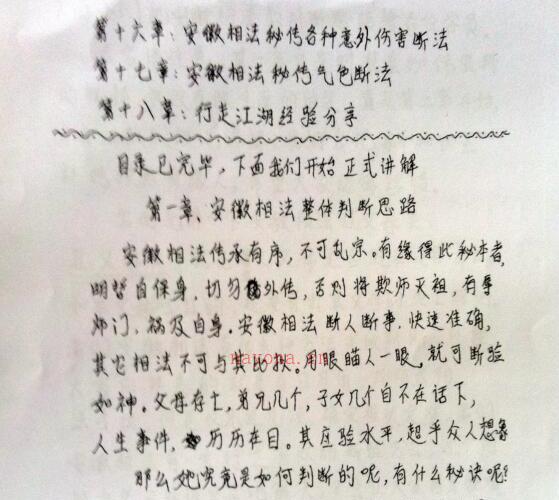 第十六章:安徽相法秘传各种意外伤害断法
第十七章:安徽相法秘传气色断法
第十八章:行走江湖经验分享
目录已完毕,下面我们开始正式讲解
第一章、安徽相法整体判断思路
安徽相法传承有序,不可乱宗。有缘得此秘本者,
明哲自保身,切勿外传,否则将欺师灭祖,有辱
师门,祸及自身。安徽相法断人断事,快速准确,
其它相法不可与其比拟。用眼瞄人一眼,就可断验
如神。父母存亡,弟兄几个,子女几个自不在话下,
人生事件,历历在目。其应验水平,超乎众人想象
那么她究竟是如何判断的呢,有什么秘诀呢?